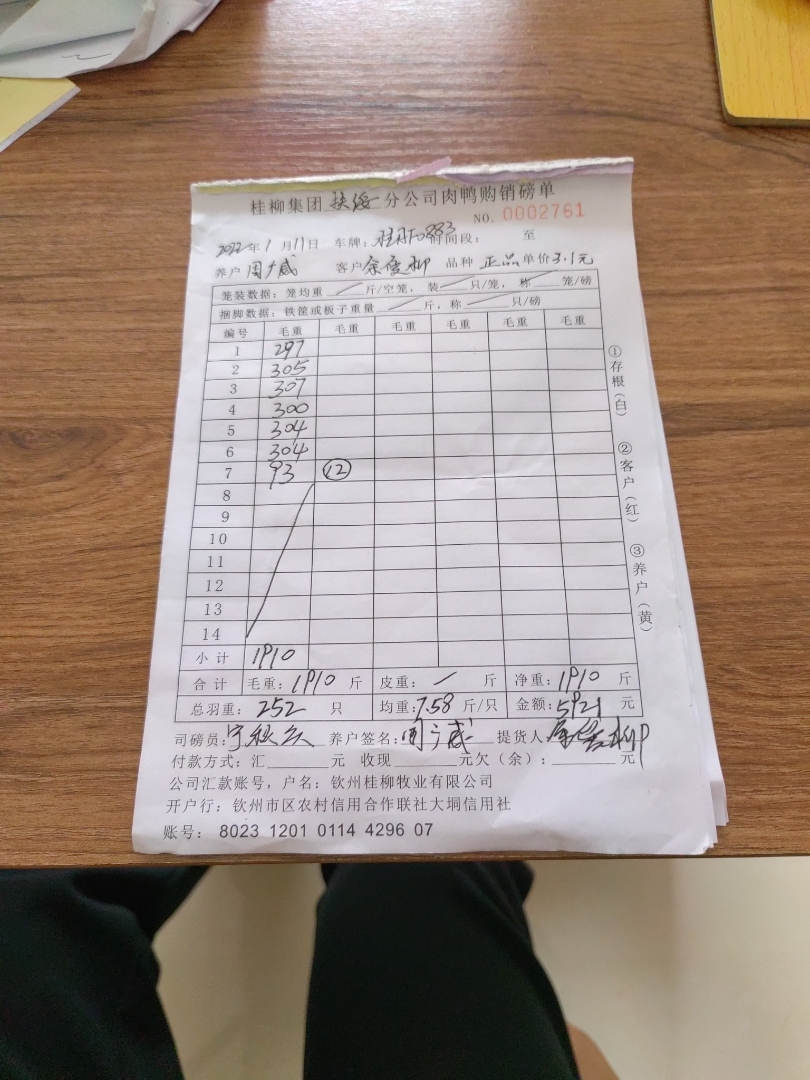 桂柳集团 扶绥 分公司肉鸭购销磅单
NO. 0002761
2022年1月11日 车牌: 时间段: 至
养户 周广威 客户 余 柳 品种 正品 单价3.1元
笼装数据: 笼均重 / 斤/空笼, 装 / 只/笼, 称 / 笼/磅
捆脚数据: 铁筐或板子重量 / 斤, 称 / 只/磅
编号 毛重 毛重 毛重 毛重 毛重 毛重
1 297
2 305
3 307
4 300
5 304
6 304
7 93 12
8
9
10
11
12
13
14
小计 1910
合计 毛重: 1910 斤 皮重: / 斤 净重: 1910 斤
总羽重: 252 只 均重: 7.58 斤/只 金额: 5921 元
司磅员: 养户签名: 周广威 提货人
付款方式: 汇 元 收现 元欠(余): 元
公司汇款账号, 户名: 钦州桂柳牧业有限公司
开户行: 钦州市区农村信用合作联社大垌信用社
账号: 8023 1201 0114 4296 07
①存根(白)
②客户(红)
③养户(黄)